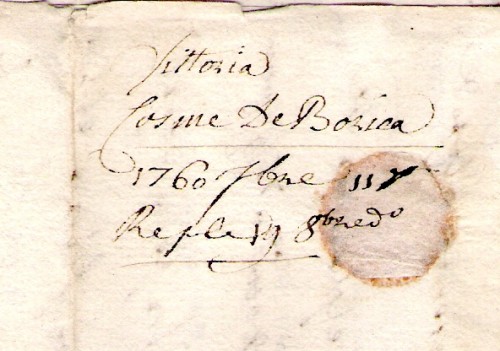 Vittoria
Cosme De Borica
1760 7bre 11
Rple 19 8bre do